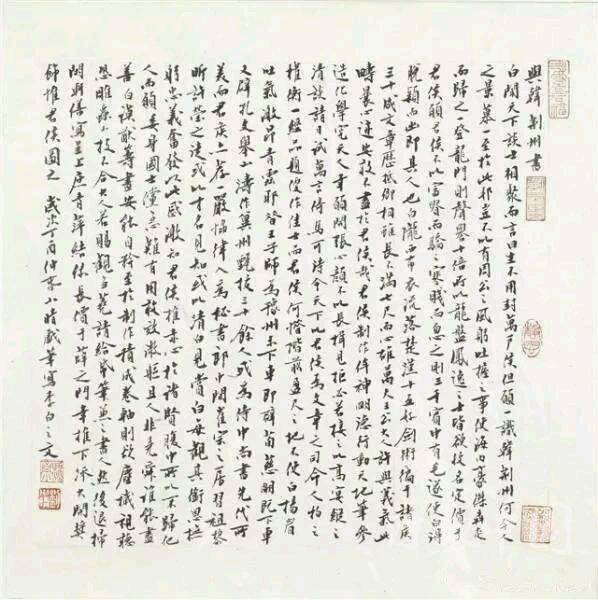 與韓荊州書
白聞天下談士相聚而言曰生不用封萬戶侯但願一識韓荊州何令人
之景慕一至於此耶豈不以有周公之風躬吐握之事使海內豪傑奔走
而歸之一登龍門則聲譽十倍所以龍盤鳳逸之士皆欲收名定價於
君侯願君侯不以富貴而驕之寒賤而忽之則三千賓中有毛遂使白得
脫穎而出即其人也白隴西布衣流落楚漢十五好劍術徧干諸侯
三十成文章歷抵卿相雖長不滿七尺而心雄萬夫王公大人許與氣義此
疇曩心跡安敢不盡於君侯哉君侯制作侔神明德行動天地筆參
造化學究天人幸願開張心顏不以長揖見拒必若接之以高宴縱之
清談請日試萬言倚馬可待今天下以君侯為文章之司命人物之
權衡一經品題便作佳士而君侯何惜階前盈尺之地不使白揚眉
吐氣激昂青雲耶昔王子師為豫州未下車即辟荀慈明既下車
又辟孔文舉山濤作冀州甄拔三十餘人或為侍中尚書先代所
美而君侯亦一薦嚴協律入為秘書郎中間崔宗之房習祖黎
昕許瑩之徒或以才名見知或以清白見賞白每觀其銜恩撫
躬忠義奮發以此感激知君侯推赤心於諸賢腹中所以不歸他
人而願委身國士儻急難有用敢效微軀且人非堯舜誰能盡
善白謨猷籌畫安能自矜至於制作積成卷軸則欲塵穢視聽
恐雕蟲小技不合大人若賜觀芻蕘請給紙筆兼之書人然後退掃
閒軒繕寫呈上庶青萍結綠長價於薛卞之門幸推下流大開獎
飾惟君侯圖之 歲末丁酉仲冬小時戲筆寫李白之文